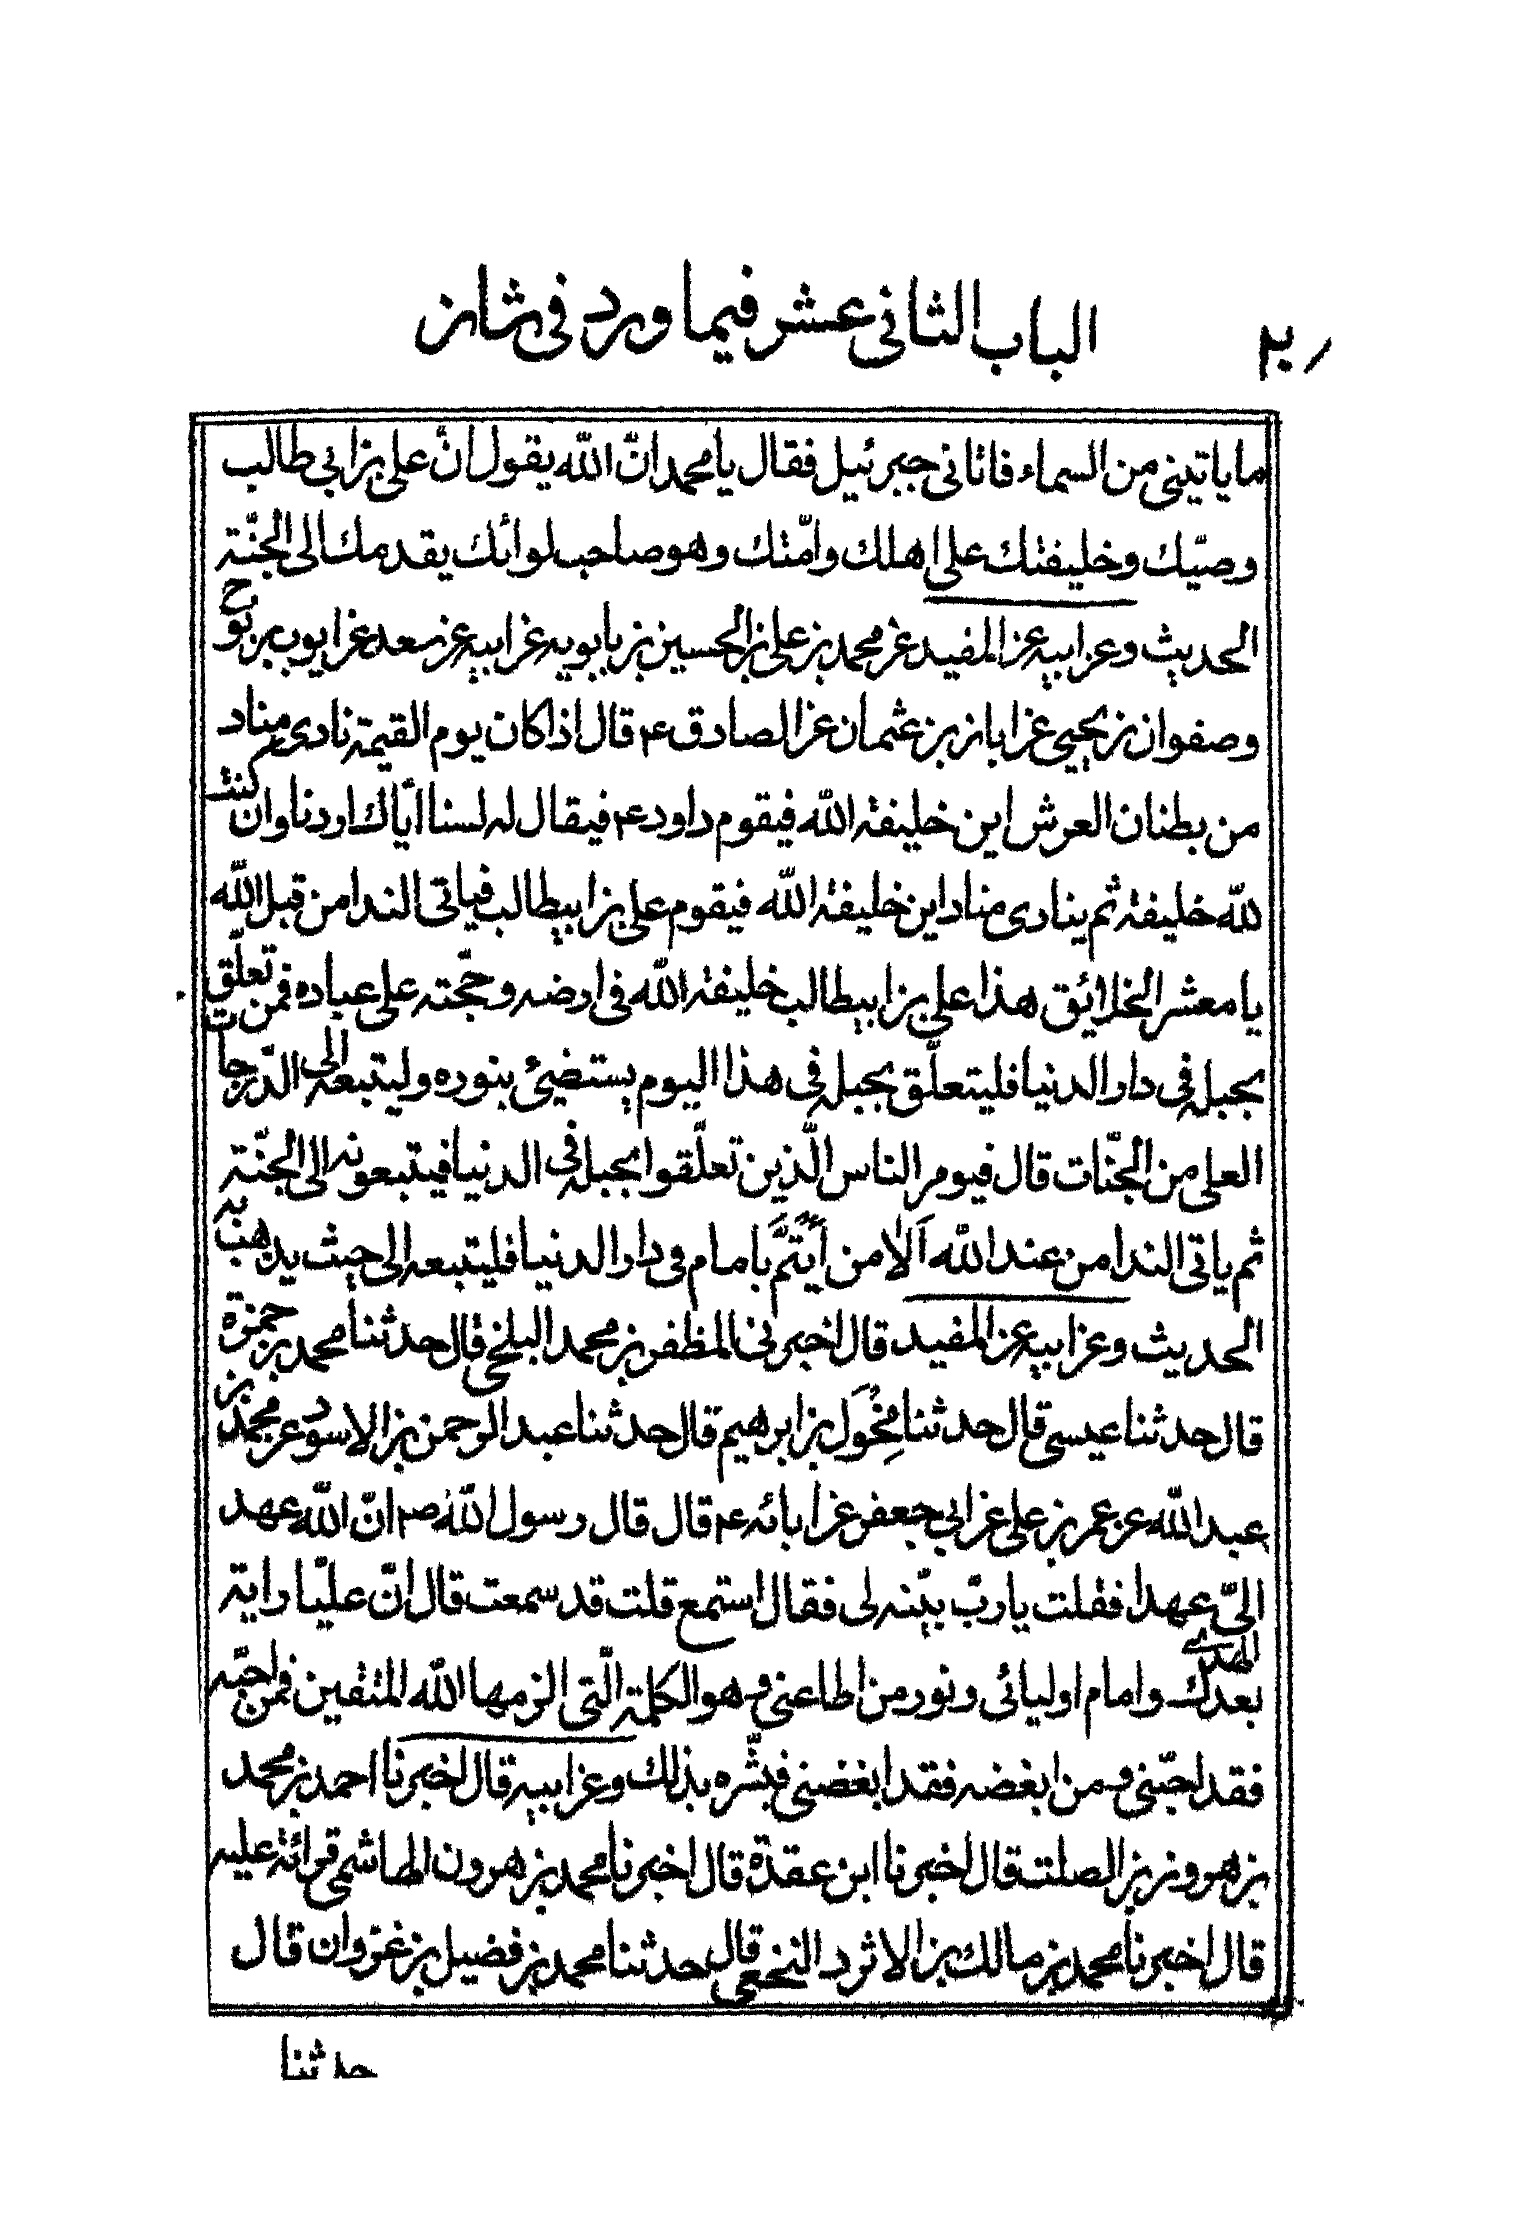 الباب الثانى عشر فيما ورد فى شان
ما ياتينى من السماء فاتانى جبرئيل فقال يا محمد انّ الله يقول انّ على بن ابى طالب
وصيّك وخليفتك على اهلك وامّتك وهو صاحب لوائك يقدمك الى الجنّة
الحديث وعن ابيه عن المفيد عن محمد بن على بن الحسين بن بابويه عن ابيه عن سعد عن ايوب بن نوح
وصفوان بن يحيى عن ابان بن عثمان عن الصادق ع قال اذا كان يوم القيمة نادى مناد
من بطنان العرش اين خليفة الله فيقوم داود ع فيقال له لسنا اياك اردنا وان كنت
لله خليفة ثم ينادى مناد اين خليفة الله فيقوم على بن ابيطالب فياتى الندا من قبل الله
يا معشر الخلائق هذا على بن ابيطالب خليفة الله فى ارضه وحجّته على عباده فمن تعلّق
بحبله فى دار الدنيا فليتعلّق بحبله فى هذا اليوم يستضئ بنوره وليتبعه الى الدّرجات
العلى من الجنّات قال فيوم الناس الّذين تعلّقوا بحبله فى الدنيا فيتبعونه الى الجنّة
ثم ياتى الندا من عند الله اَلاٰ من أيْتمَّ بامام فى دار الدنيا فليتبعه الى حيث يذهب به
الحديث وعن ابيه عن المفيد قال اخبرنى المظفر بن محمد البلخى قال حدثنا محمد بن حمزة
قال حدثنا عيسى قال حدثنا مِخْوَل بن ابرهيم قال حدثنا عبد الرحمن بن الاسود عن محمد بن
عبد الله عن عمر بن على عن ابى جعفر عن ابائه ع قال قال رسول الله ص انّ الله عهد
الىّ عهدا فقلت يا ربّ بيّنه لى فقال استمع قلت قد سمعت قال انّ عليّا راية
الهدى بعدك وامام اوليائى ونور من اطاعنى وهو الكلمة الّتى الزمها الله المتقين فمن احبّه
فقد احبّنى ومن ابغضه فقد ابغضنى فبشّره بذلك وعن ابيه قال اخبرنا احمد بن محمد
بن هرون بن الصلت قال اخبرنا ابن عقدة قال اخبرنا محمد بن هرون الهاشمى قرائة عليه
قال اخبرنا محمد بن مالك بن الابرد النخعى قال حدثنا محمد بن فضيل بن غزوان قال
حدثنا